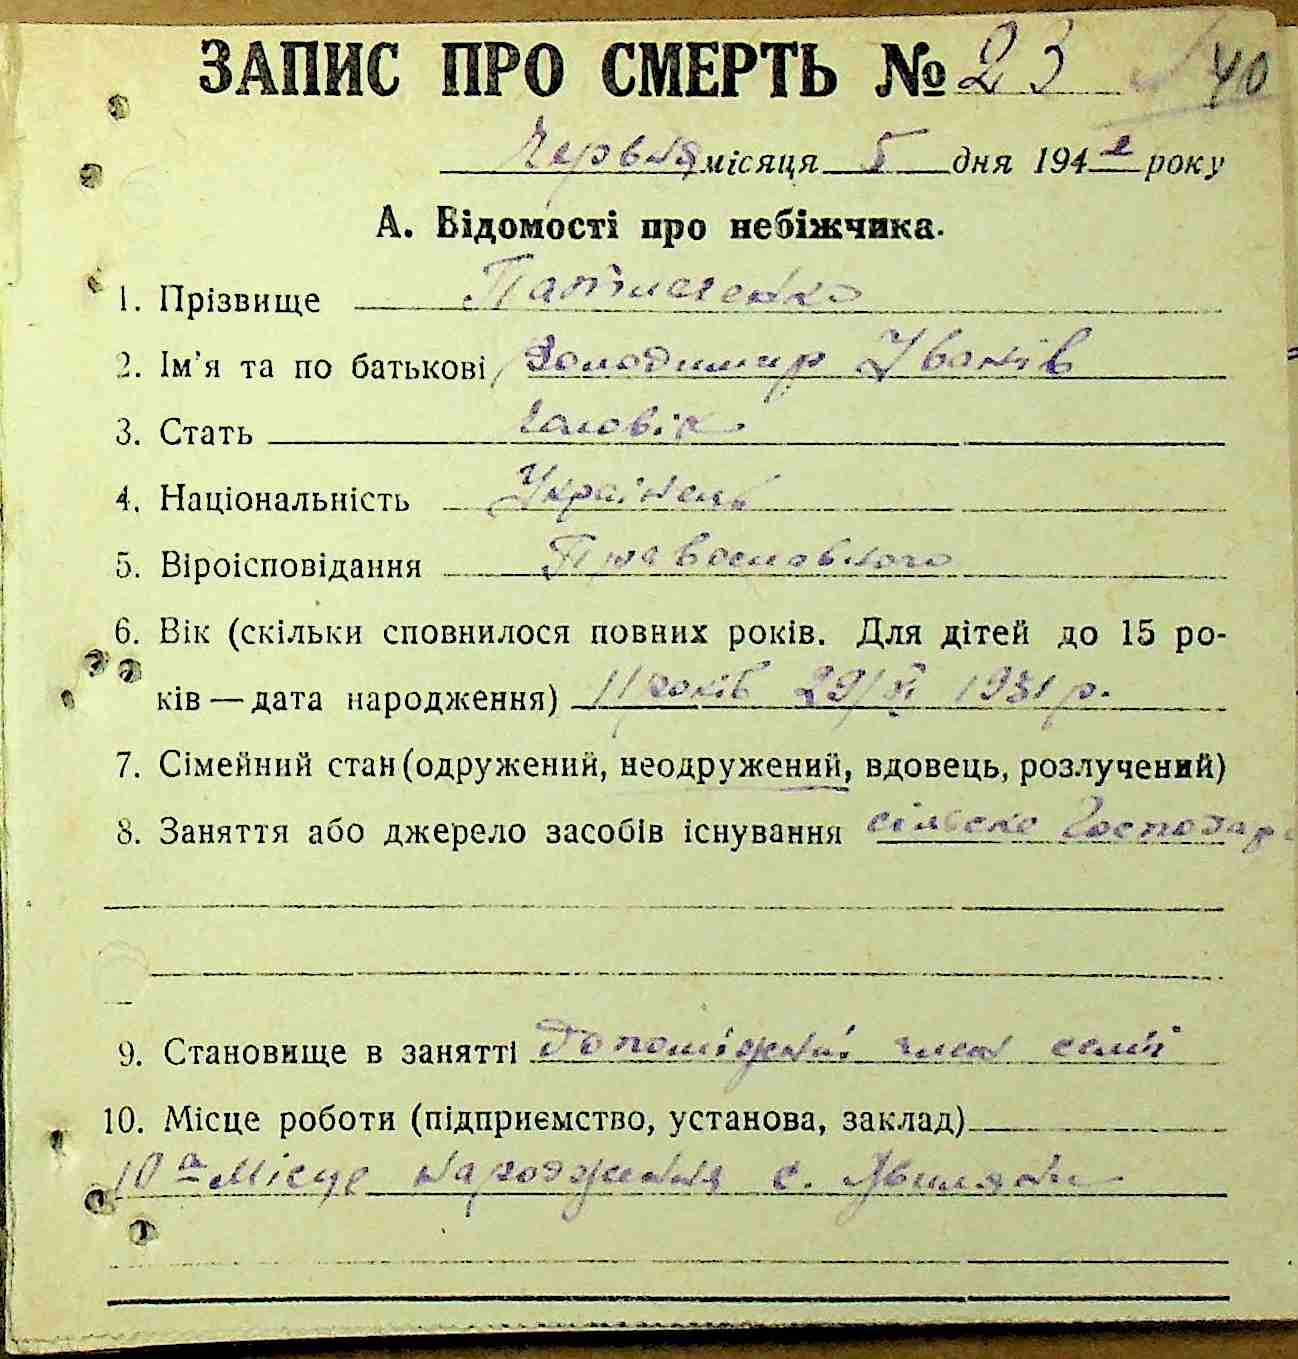 ЗАПИС ПРО СМЕРТЬ № 23 40
Червня місяця 5 дня 1942 року
А. Відомості про небіжчика.
1. Прізвище
2. Ім'я та по батькові Володимир Іванів
3. Стать чоловік
4. Національність Українець
5. Віроісповідання Православного
6. Вік (скільки сповнилося повних років. Для дітей до 15 ро-
ків — дата народження) 11 років 29/XI 1931 р.
7. Сімейний стан (одружений, неодружений, вдовець, розлучений)
8. Заняття або джерело засобів існування сільско господар
9. Становище в занятті допоміжний член семії
10. Місце роботи (підприємство, установа, заклад)
10 а Місце народження с.